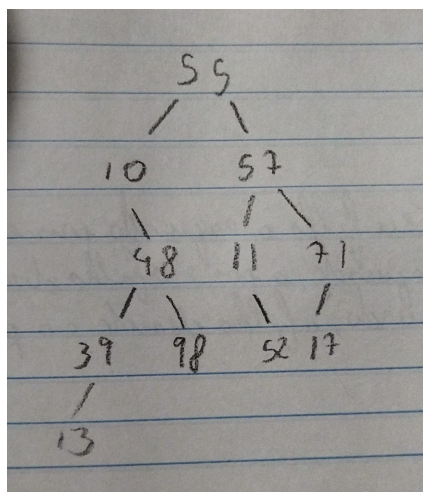 55
10 57
48 11 71
39 98 52 17
13